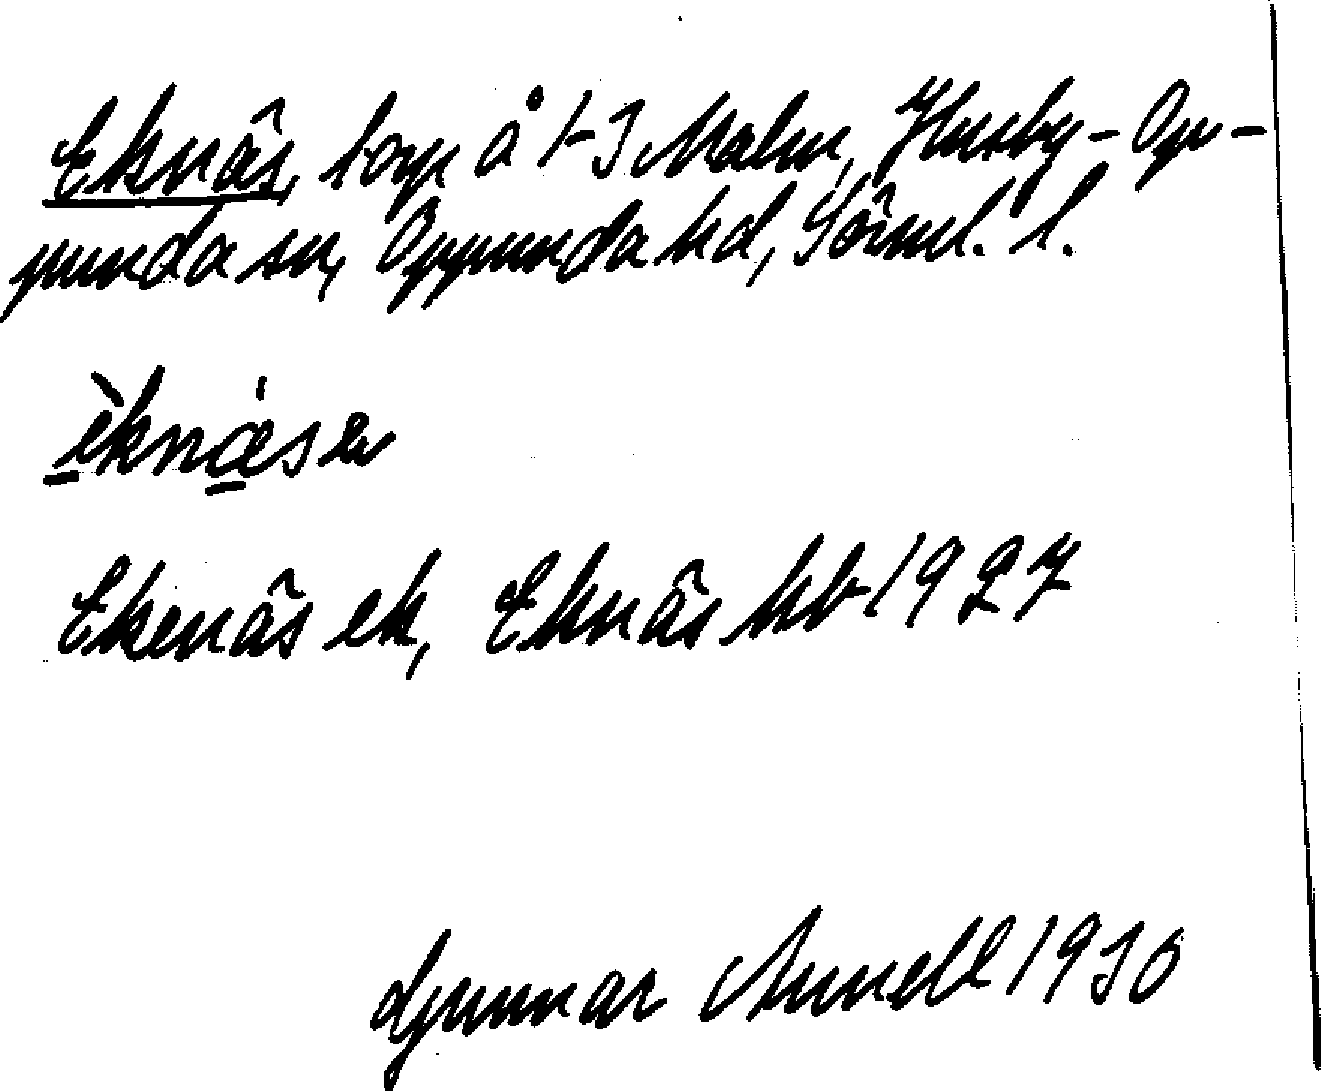 Eknäs, torp å 1-3 Malm, Husby-Op-
punda sn, Oppunda hd, Sörml. l.
èknä́sen
Ekenäs ek, Eknäs kb 1927
Gunnar Annell 1930